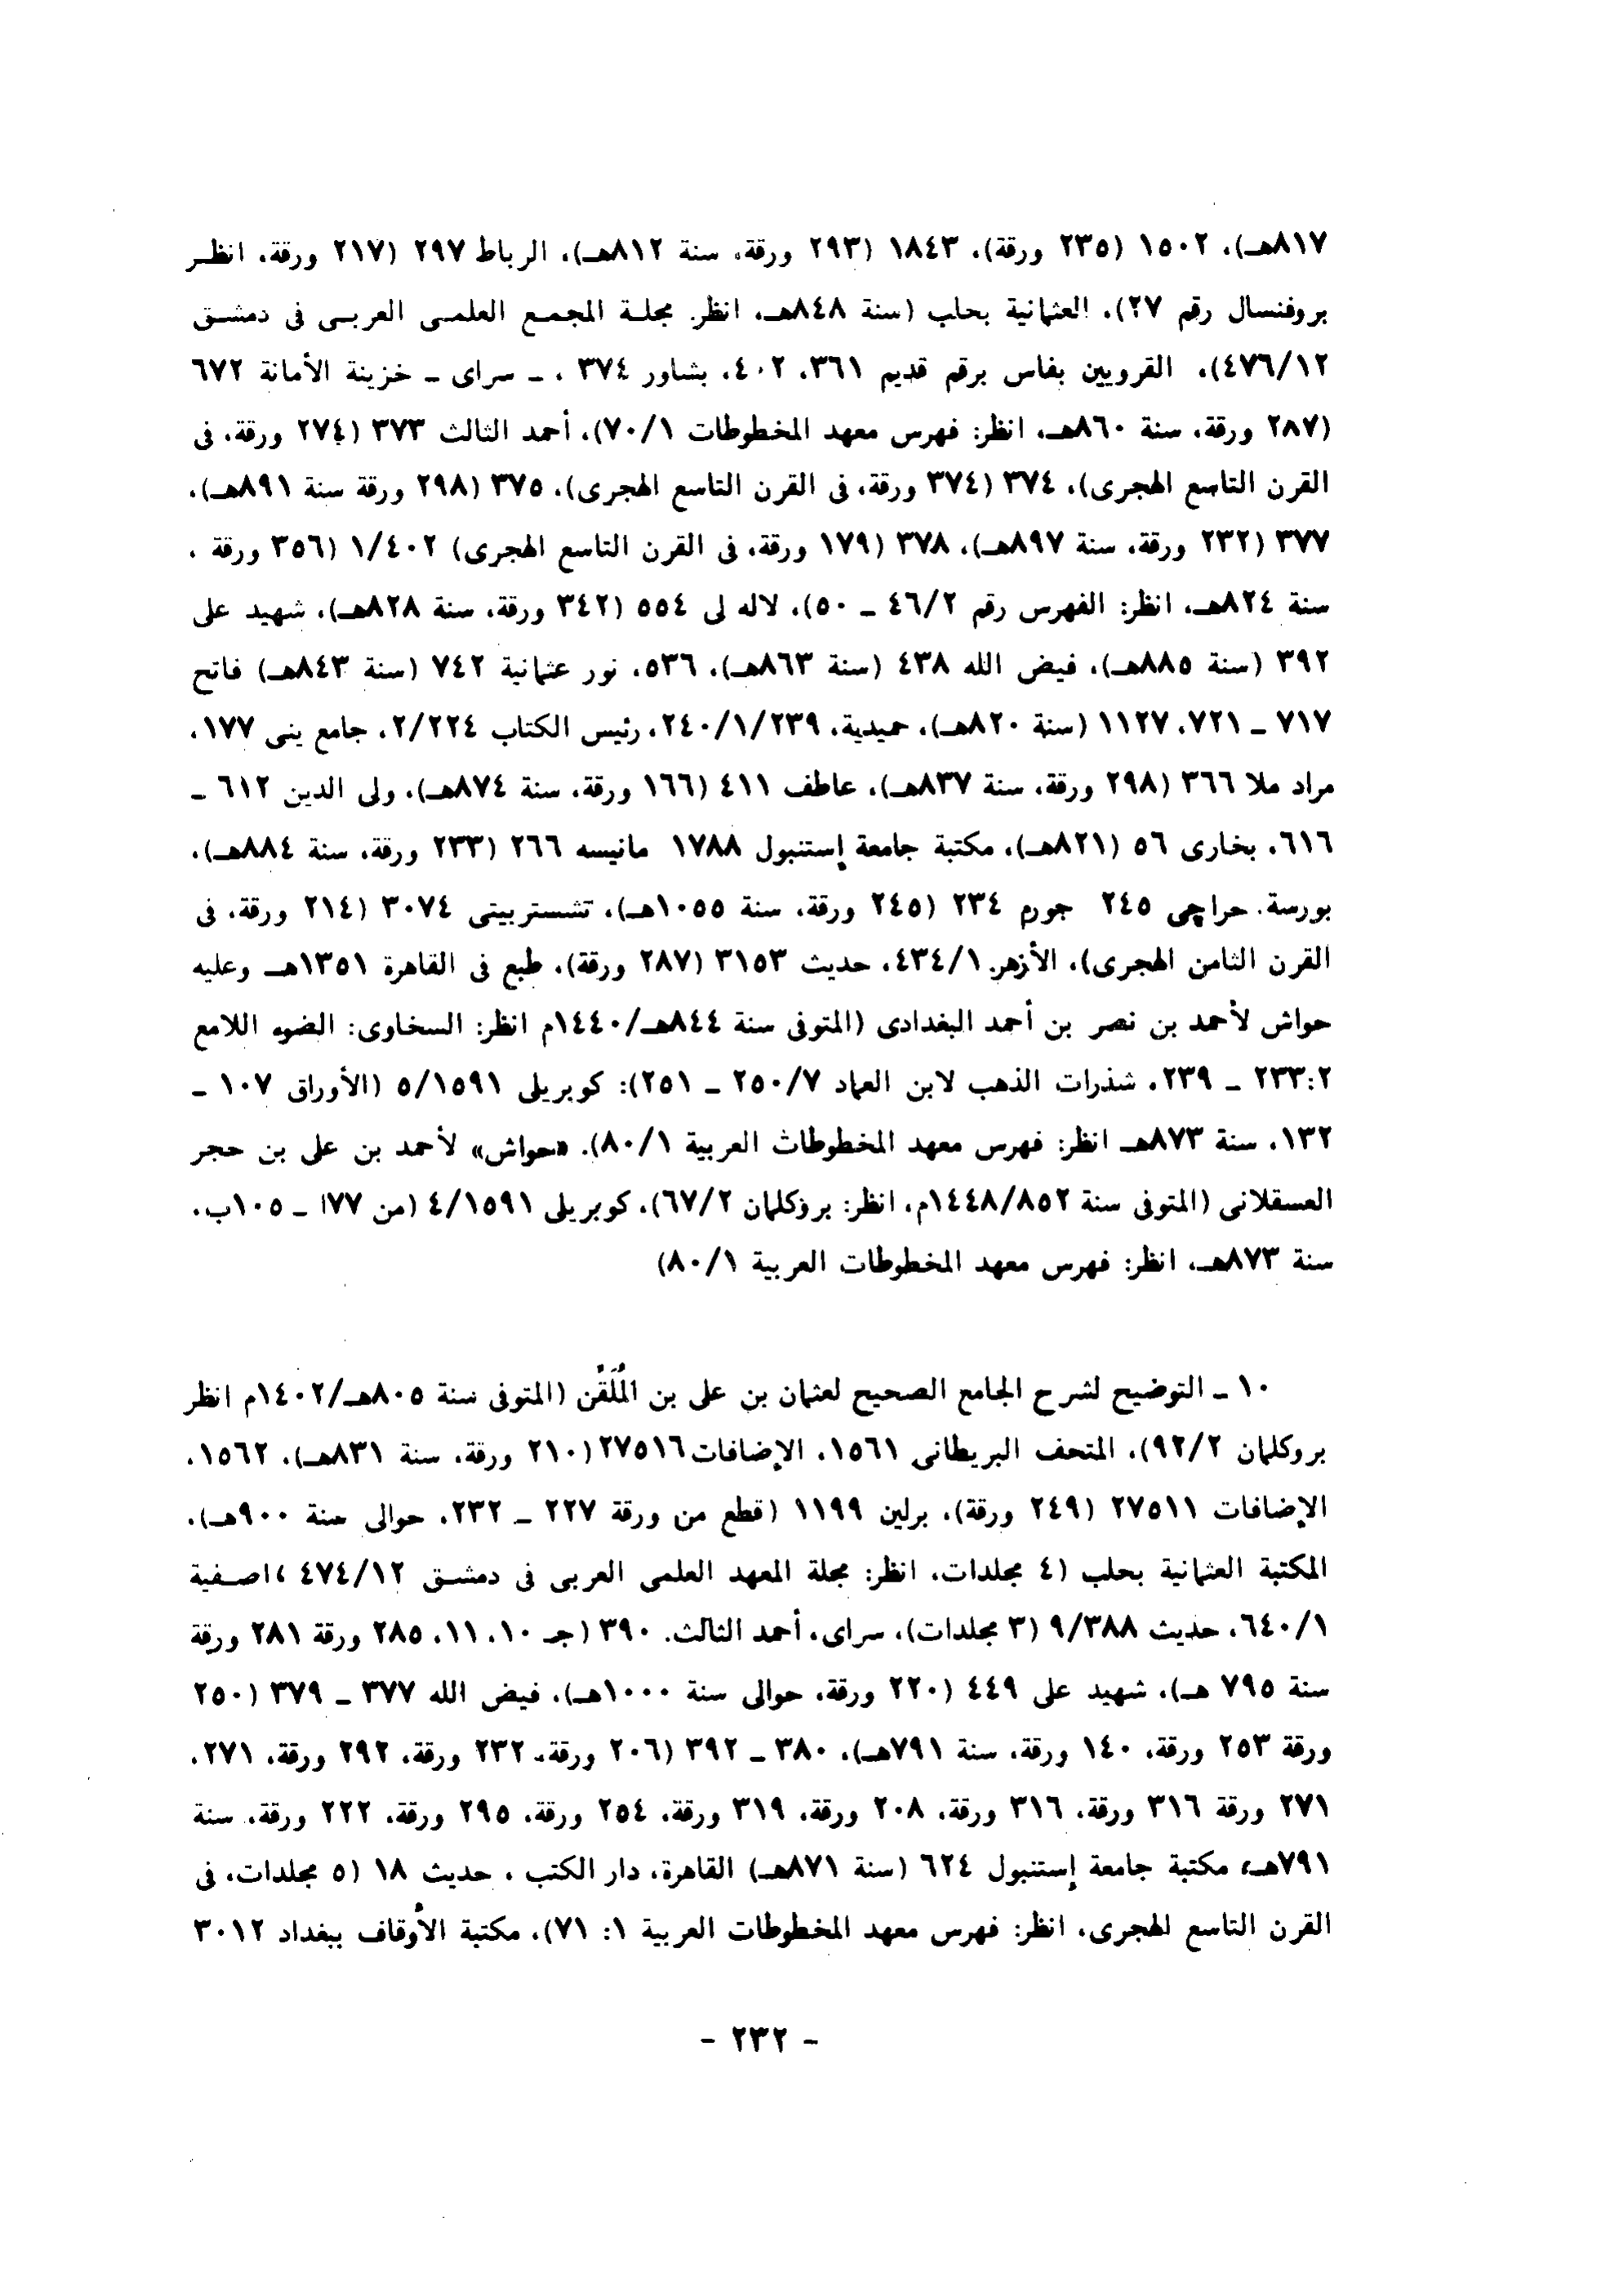 ٨١٧هـ)، ١٥٠٢ (٢٣٥ ورقة)، ١٨٤٣ (٢٩٣ ورقة، سنة ٨١٢هـ)، الرباط ٢٩٧ (٢١٧ ورقة، انظر
بروفنسال رقم ٢٧)، العثمانية بحلب (سنة ٨٤٨هـ، انظر. مجلة المجمع العلمى العربى فى دمشق
٤٧٦/١٢)، القرويين بفاس برقم قديم ٣٦١، ٤٠٢، بشاور ٣٧٤ ، ـ سراى ـ خزينة الأمانة ٦٧٢
(٢٨٧ ورقة، سنة ٨٦٠هـ، انظر: فهرس معهد المخطوطات ٧٠/١)، أحمد الثالث ٣٧٣ (٢٧٤ ورقة، فى
القرن التاسع الهجرى)، ٣٧٤ (٣٧٤ ورقة، فى القرن التاسع الهجرى)، ٣٧٥ (٢٩٨ ورقة سنة ٨٩١هـ)،
٣٧٧ (٢٣٢ ورقة، سنة ٨٩٧هـ)، ٣٧٨ (١٧٩ ورقة، فى القرن التاسع الهجرى) ١/٤٠٢ (٣٥٦ ورقة ،
سنة ٨٢٤هـ، انظر: الفهرس رقم ٤٦/٢ ـ ٥٠)، لاله لى ٥٥٤ (٣٤٢ ورقة، سنة ٨٢٨هـ)، شهيد على
٣٩٢ (سنة ٨٨٥هـ)، فيض الله ٤٣٨ (سنة ٨٦٣هـ)، ٥٣٦، نور عثمانية ٧٤٢ (سنة ٨٤٣هـ) فاتح
٧١٧ ـ ٧٢١، ١١٢٧ (سنة ٨٢٠هـ)، حميدية، ٢٤٠/١/٢٣٩، رئيس الكتاب ٢/٢٢٤، جامع ينى ١٧٧،
مراد ملا ٣٦٦ (٢٩٨ ورقة، سنة ٨٣٧هـ)، عاطف ٤١١ (١٦٦ ورقة، سنة ٨٧٤هـ)، ولى الدين ٦١٢ ـ
٦١٦، بخارى ٥٦ (٨٢١هـ)، مكتبة جامعة إستنبول ١٧٨٨ مانيسه ٢٦٦ (٢٣٣ ورقة، سنة ٨٨٤هـ)،
بورسة. حراچى ٢٤٥ جورم ٢٣٤ (٢٤٥ ورقة، سنة ١٠٥٥هـ)، تشستربيتى ٣٠٧٤ (٢١٤ ورقة، فى
القرن الثامن الهجرى)، الأزهر ٤٣٤/١، حديث ٣١٥٣ (٢٨٧ ورقة)، طبع فى القاهرة ١٣٥١هـ وعليه
حواش لأحمد بن نصر بن أحمد البغدادى (المتوفى سنة ٨٤٤هـ/١٤٤٠م انظر: السخاوى: الضوء اللامع
٢٣٣:٢ ـ ٢٣٩، شذرات الذهب لابن العماد ٢٥٠/٧ ـ ٢٥١): كوبريلى ٥/١٥٩١ (الأوراق ١٠٧ ـ
١٣٢، سنة ٨٧٣هـ انظر: فهرس معهد المخطوطات العربية ٨٠/١). «حواش» لأحمد بن على بن حجر
العسقلانى (المتوفى سنة ١٤٤٨/٨٥٢م، انظر: بروكلمان ٦٧/٢)، كوبريلى ٤/١٥٩١ (من ٧٧ا ـ ١٠٥ب،
سنة ٨٧٣هـ، انظر: فهرس معهد المخطوطات العربية ٨٠/١)
١٠ ـ التوضيح لشرح الجامع الصحيح لعثمان بن على بن المُلَقِّن (المتوفى سنة ٨٠٥هـ/١٤٠٢م انظر
بروكلمان ٩٢/٢)، المتحف البريطانى ١٥٦١، الإضافات ٢٧٥١٦ (٢١٠ ورقة، سنة ٨٣١هـ)، ١٥٦٢،
الإضافات ٢٧٥١١ (٢٤٩ ورقة)، برلين ١١٩٩ (قطع من ورقة ٢٢٧ ـ ٢٣٢، حوالى سنة ٩٠٠هـ)،
المكتبة العثمانية بحلب (٤ مجلدات، انظر: مجلة المعهد العلمى العربى فى دمشق ٤٧٤/١٢ ،اصفية
٦٤٠/١، حديث ٩/٣٨٨ (٣ مجلدات)، سراى، أحمد الثالث. ٣٩٠ (جـ ١٠، ١١، ٢٨٥ ورقة ٢٨١ ورقة
سنة ٧٩٥ هـ)، شهيد على ٤٤٩ (٢٢٠ ورقة، حوالى سنة ١٠٠٠هـ)، فيض الله ٣٧٧ ـ ٣٧٩ (٢٥٠
ورقة ٢٥٣ ورقة، ١٤٠ ورقة، سنة ٧٩١هـ)، ٣٨٠ ـ ٣٩٢ (٢٠٦ ورقة، ٢٣٢ ورقة، ٢٩٢ ورقة، ٢٧١،
٢٧١ ورقة ٣١٦ ورقة، ٣١٦ ورقة، ٢٠٨ ورقة، ٣١٩ ورقة، ٢٥٤ ورقة، ٢٩٥ ورقة، ٢٢٢ ورقة، سنة
٧٩١هـ، مكتبة جامعة إستنبول ٦٢٤ (سنة ٨٧١هـ) القاهرة، دار الكتب ، حديث ١٨ (٥ مجلدات، فى
القرن التاسع الهجرى، انظر: فهرس معهد المخطوطات العربية ١: ٧١)، مكتبة الأوقاف ببغداد ٣٠١٢
- ٢٣٢ -